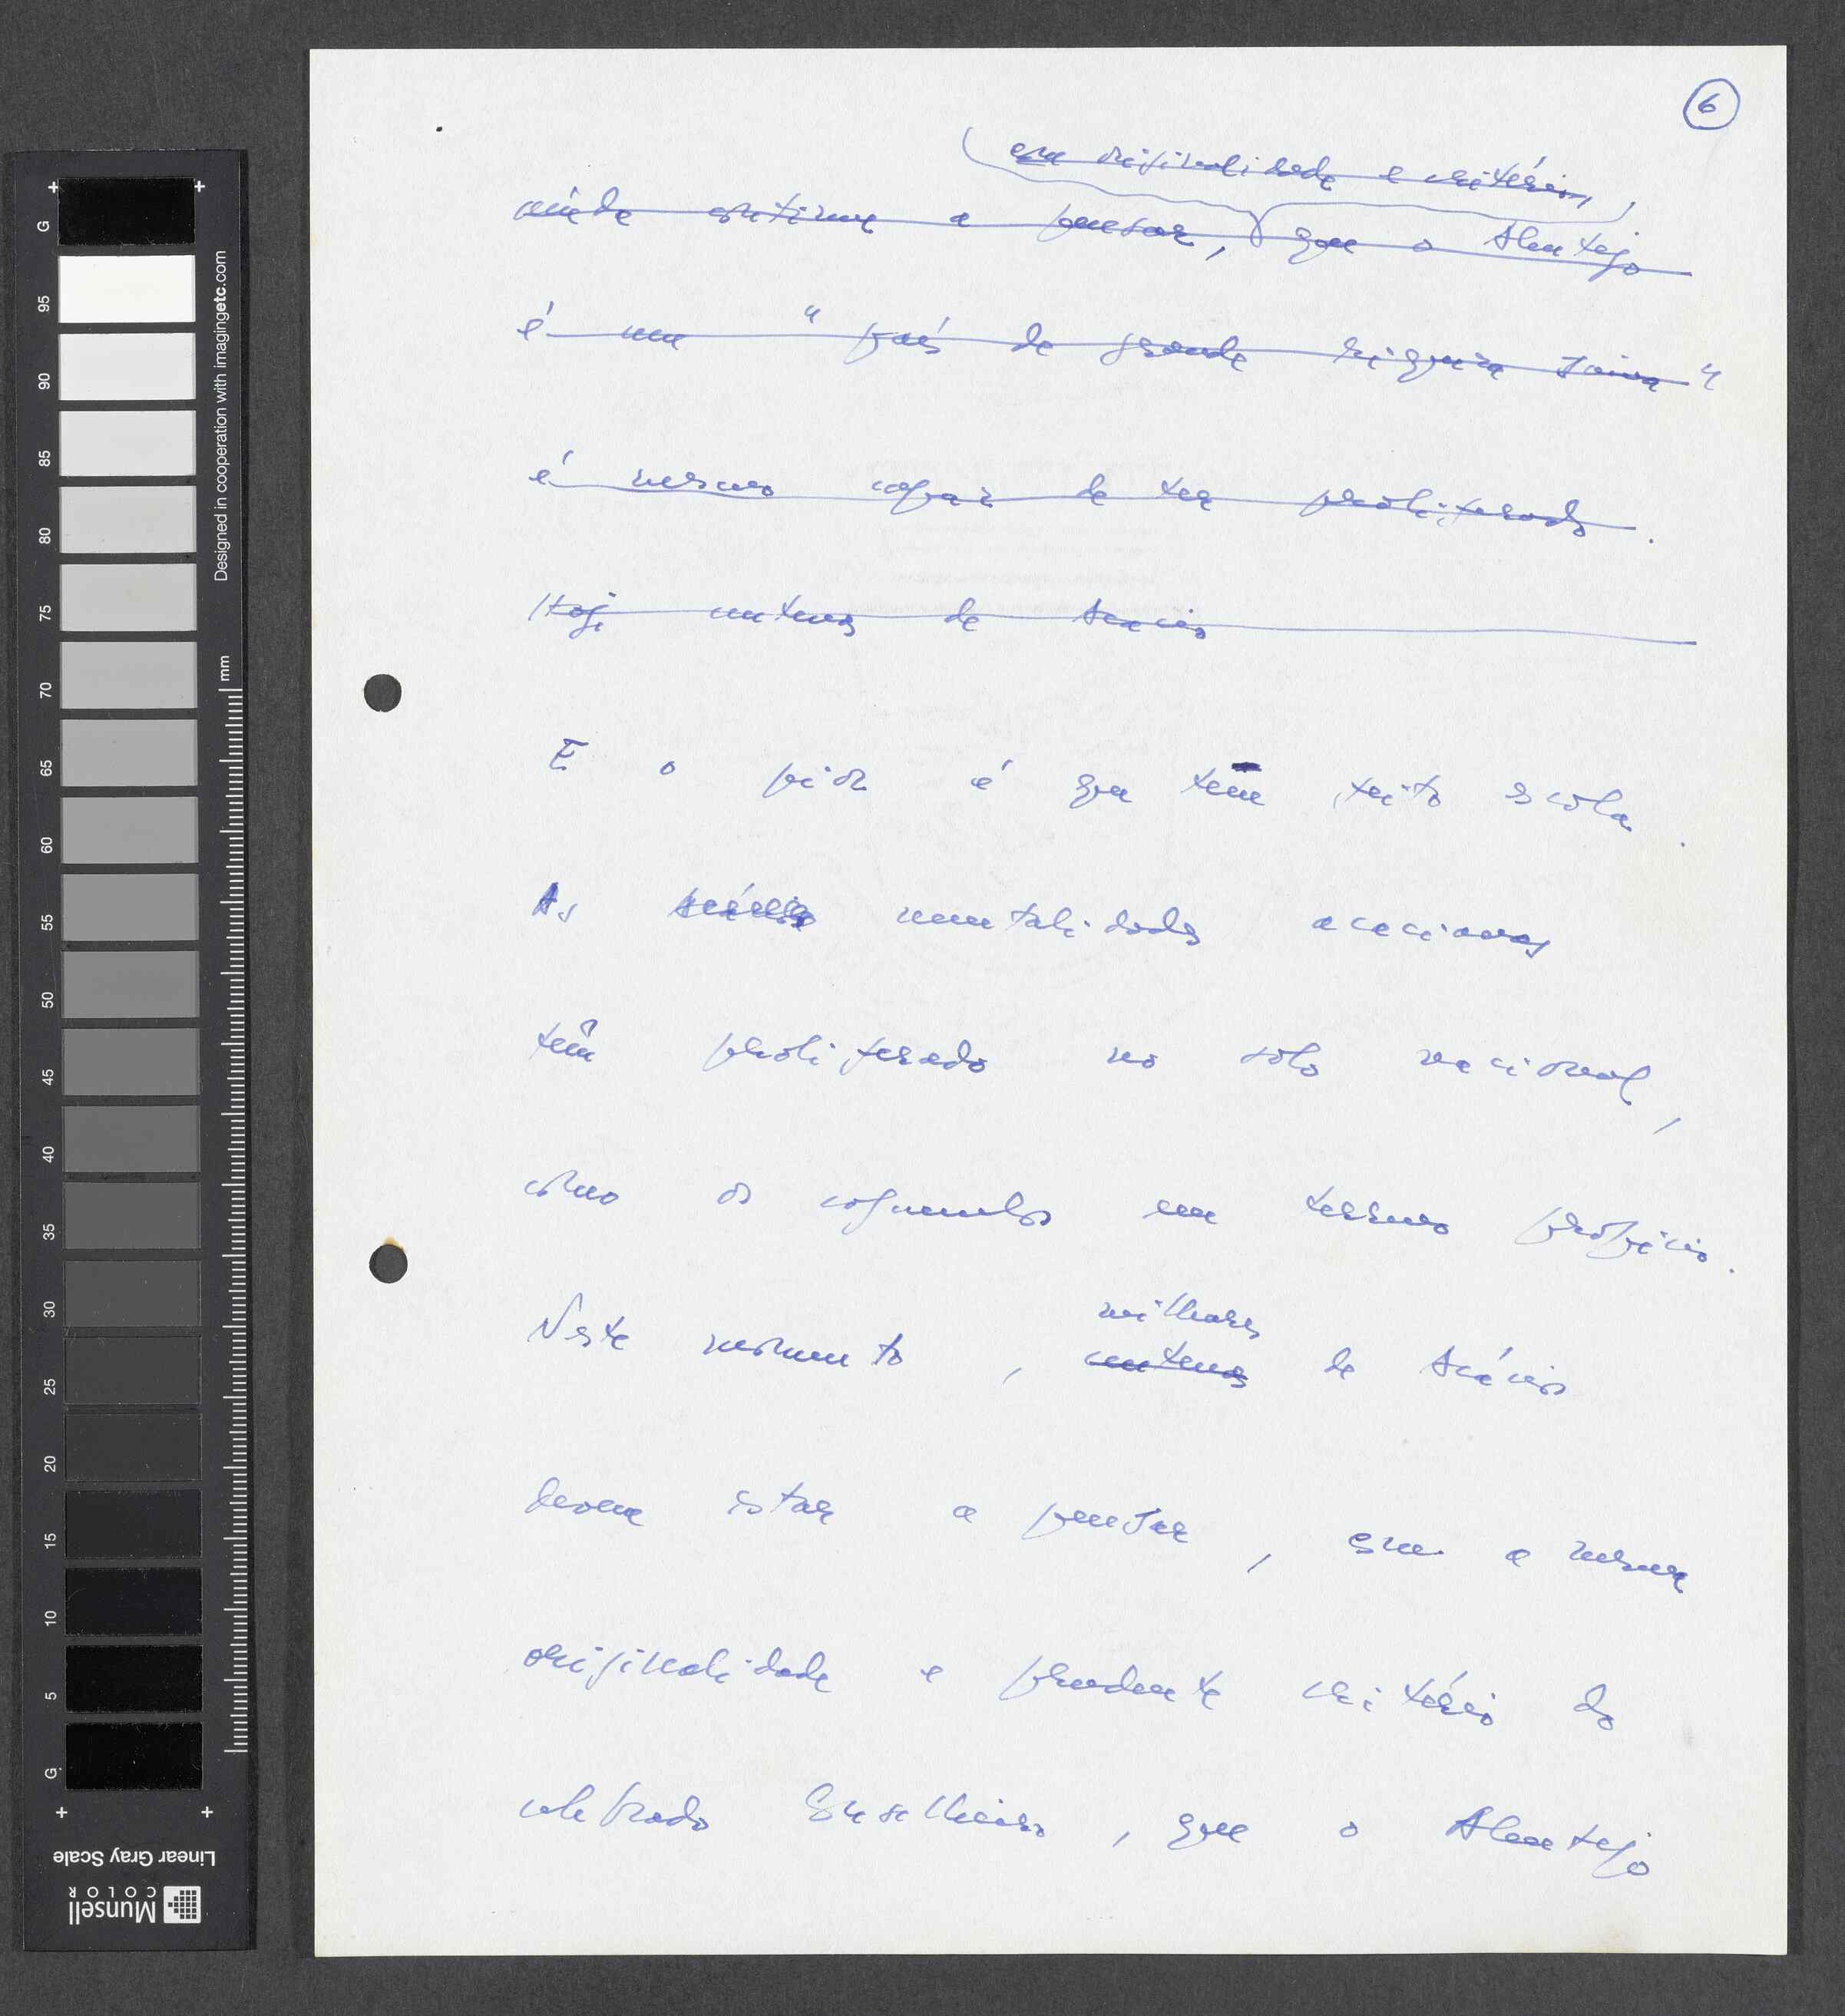 6
com originalidade e critério,
ainda continua a pensar, que o Alentejo
é um "país de grande riqueza suína"
é mesmo capaz de ter proliferado.
Hoje centenas de Acácios
E o pior é que tem feito escola.
As Acácios mentalidades acacianas
têm proliferado no solo nacional,
como os cogumelos em terreno propício.
Neste momento, milhares
centenas de Acácios
devem estar a pensar, com a mesma
originalidade e prudente critério do
celebrado Conselheiro, que o Alentejo
G 95 90 85 80 75 70 65 60 55 50 45 40 35 30 25 20 15 10 5 G
mm
Designed in cooperation with imagingetc.com
Linear Gray Scale
Munsell
COLOR